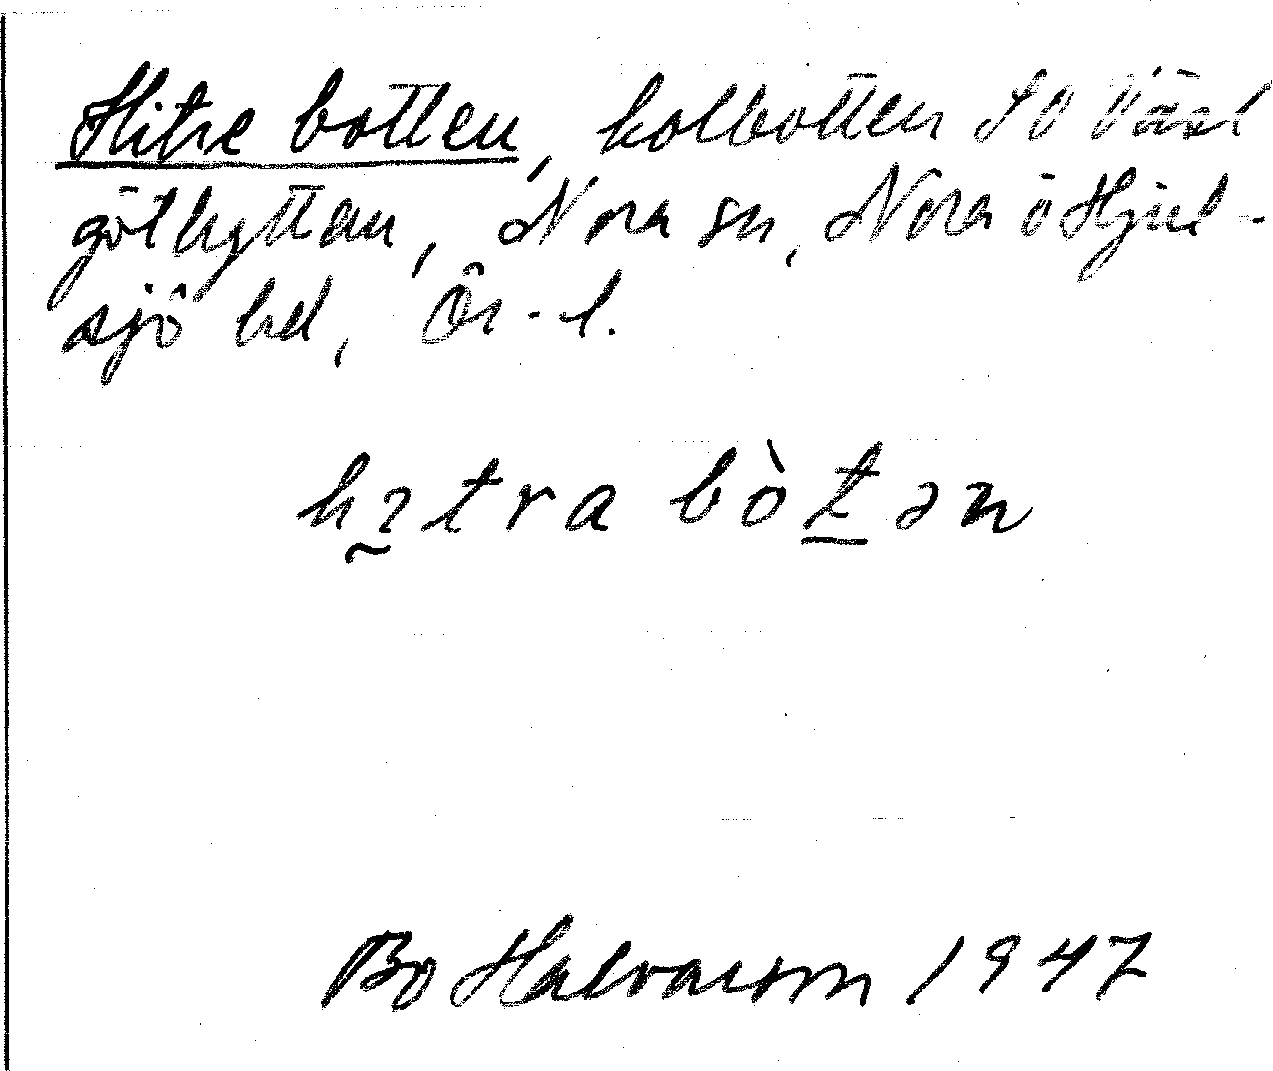 Hitre botten, kolbotten SO Väst
göthyttan, Nora sn, Nora o Hjul-
sjö bel, Ör-l.
hitra bòtən
Bo Halvarson 1947